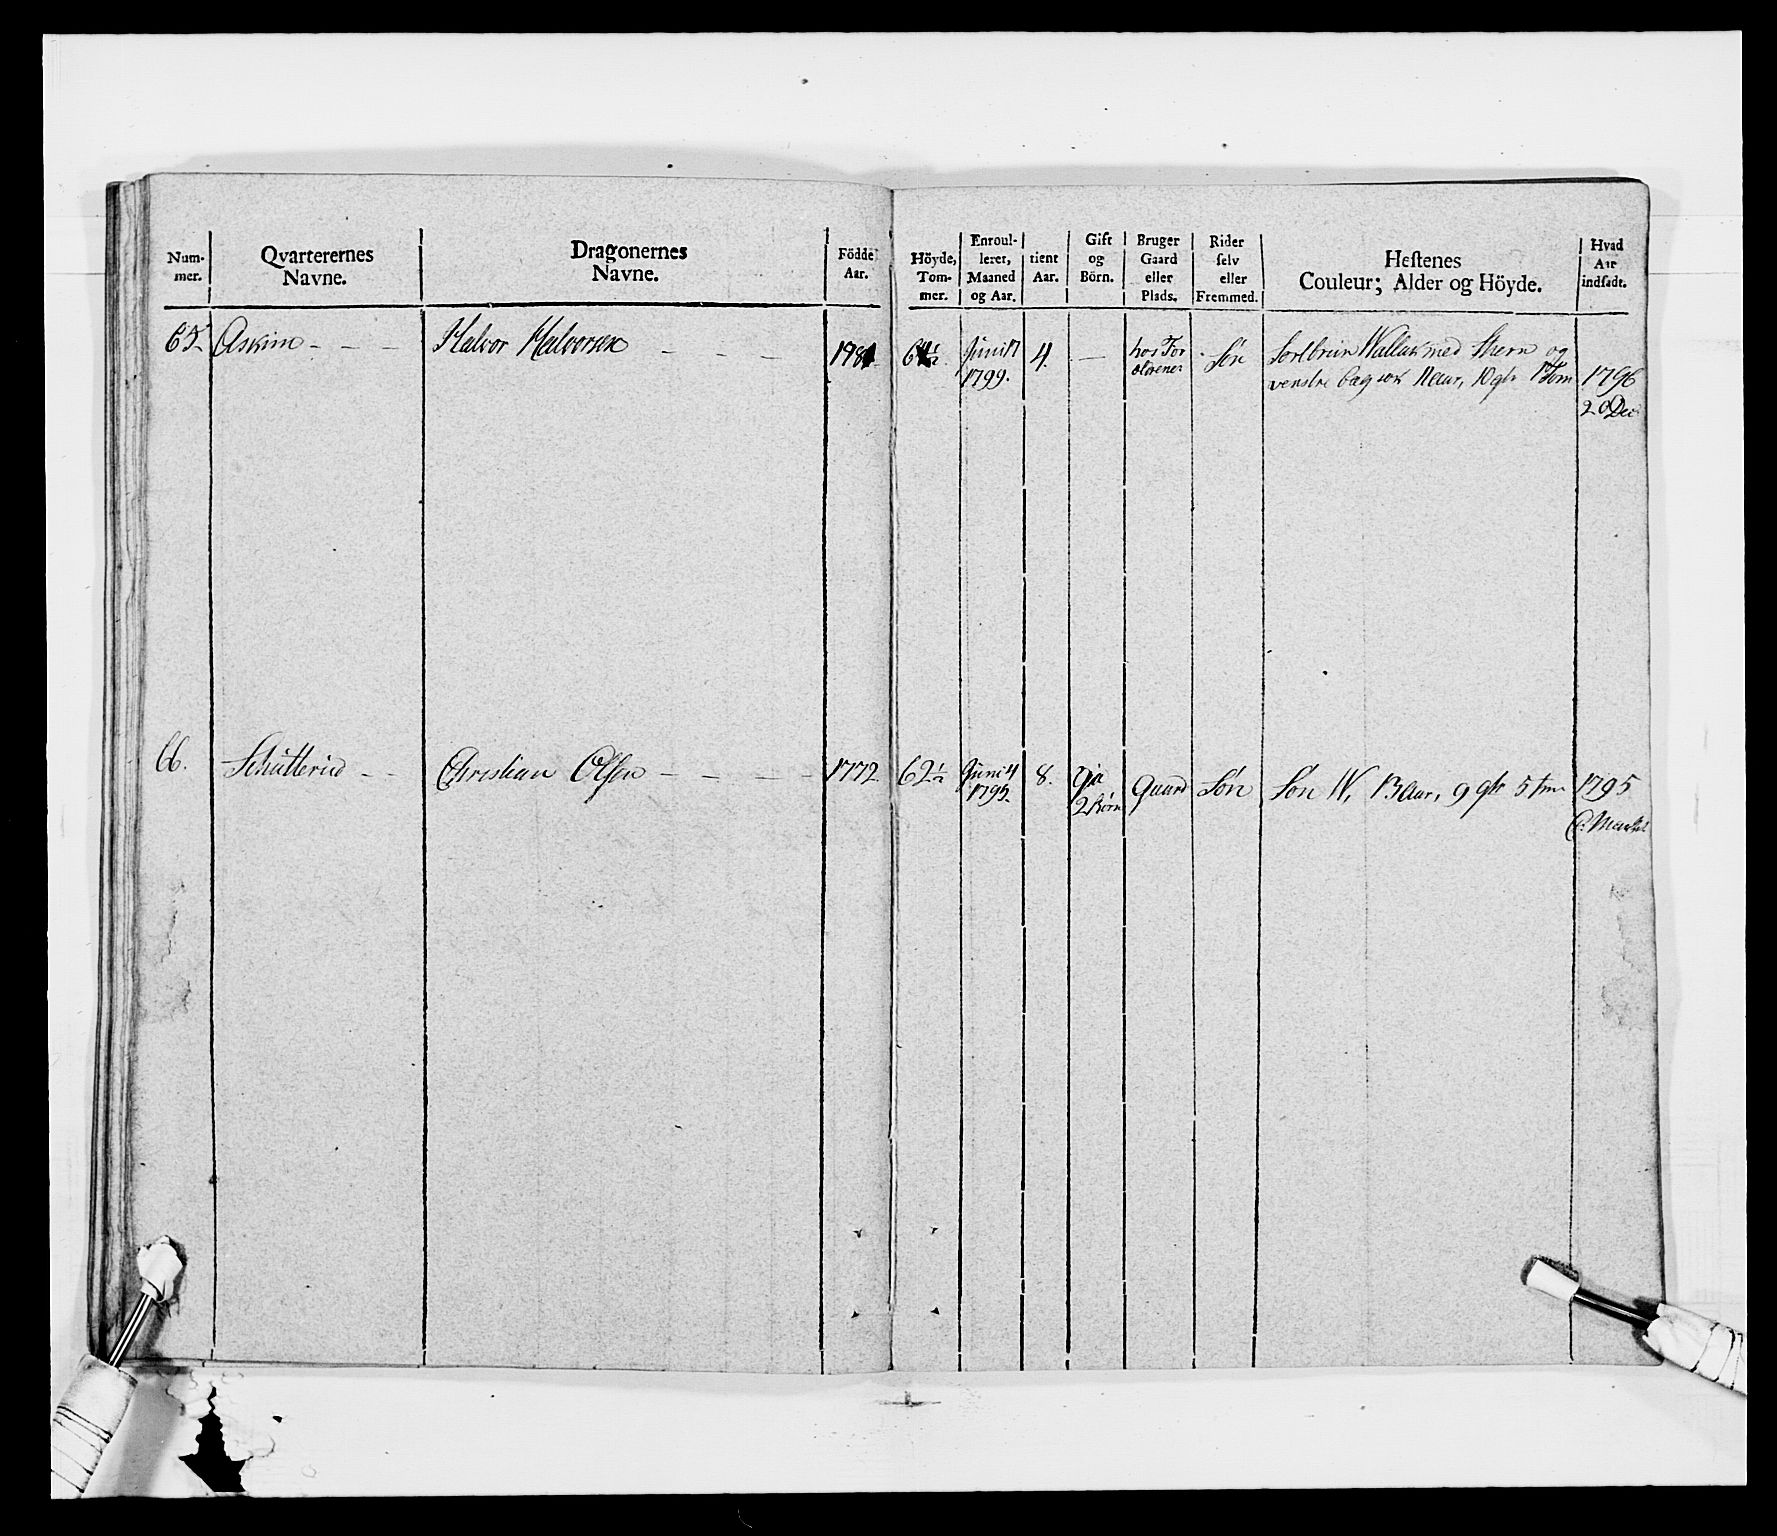 Num-
mer.
Qvarterernes
Navne.
Dragonernes
Navne.
Födde
Aar.
Höyde,
Tom-
mer.
Enroul-
leret,
Maaned
og Aar.
tient
Aar.
Gift
og
Börn.
Bruger
Gaard
eller
Plads.
Rider
selv
eller
Fremmed.
Hestenes
Couleur; Alder og Höyde.
Hvad
Aar
indsadt.
65 Askim - - -
Halvor Halvorsen - - -
61½
Juni 17
1799.
4.
—
hos For
ældrene
Søn
Sortbrun Wallak med Stiern og
venstre bag sok 11 aar, 10 qr 1 Tom
1796
20 Dec
66.
Schutterud - -
Christian Olsen - - - -
1772
62½
Juni 4
1795.
8.
Ja
2 Børn
Gaard
Søn
W, 13 Aar, 9 qr 5 tm
1795